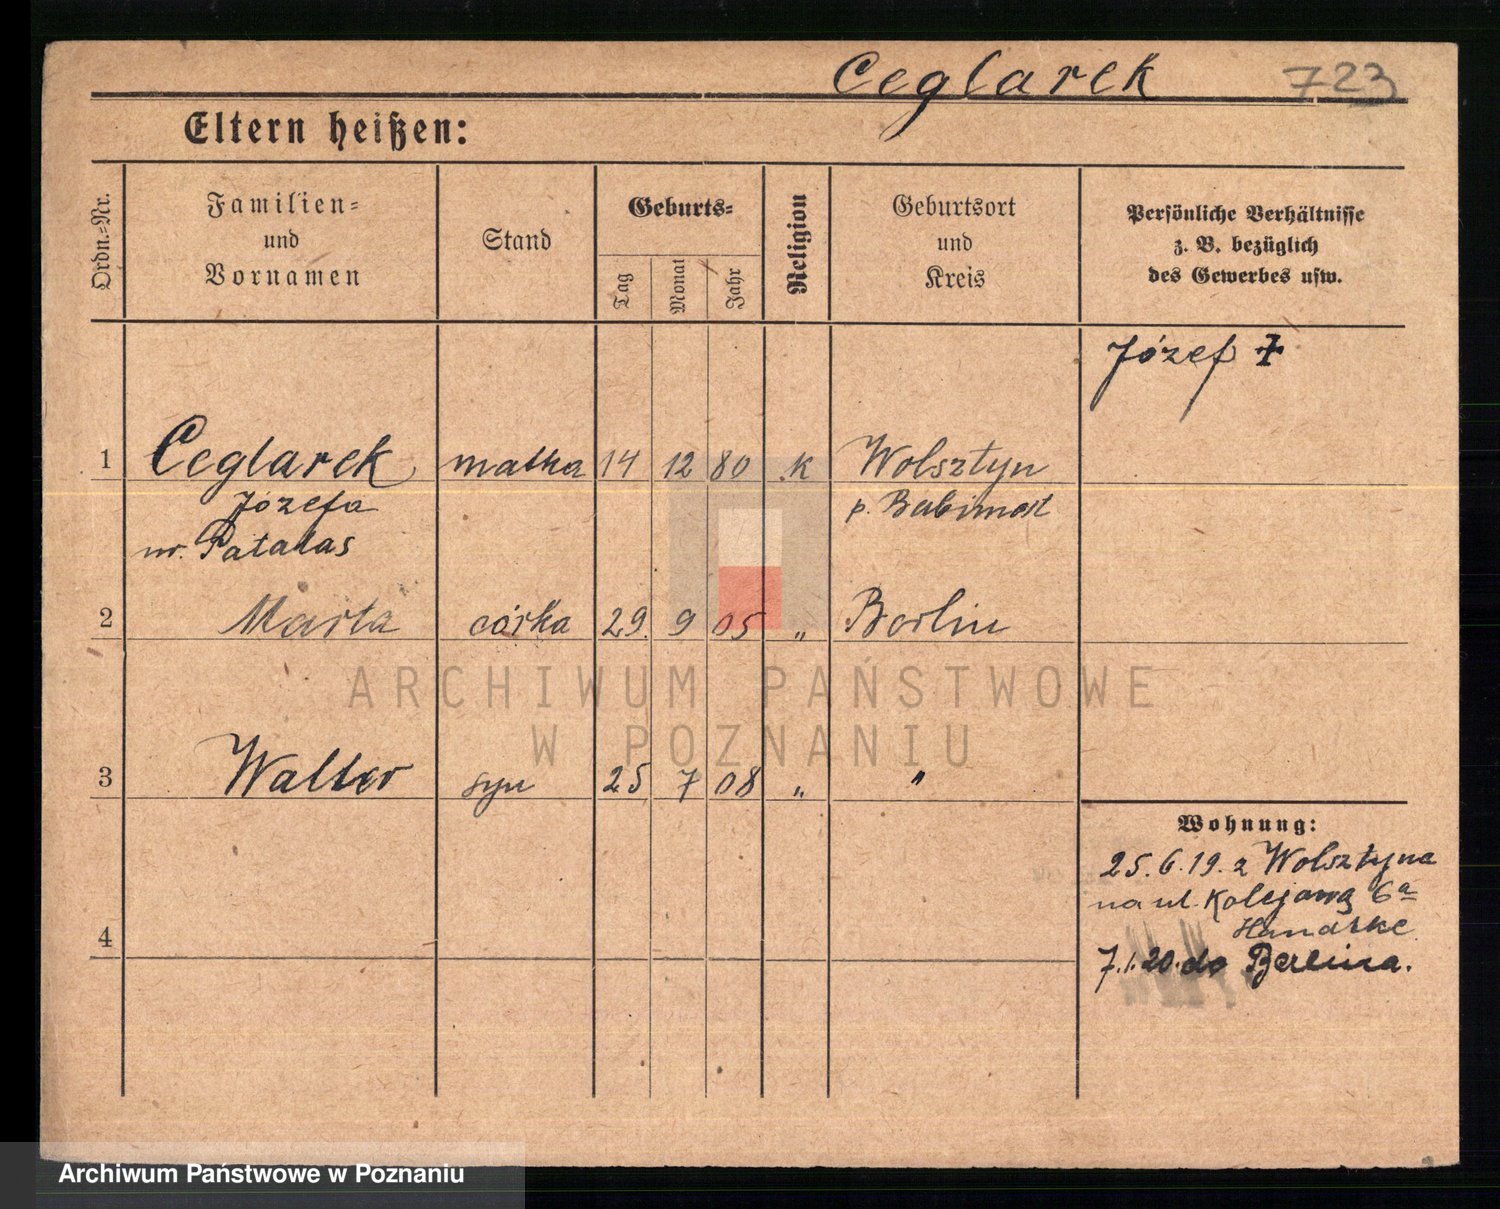 Ceglarek 723
Eltern heißen:
Ordn.-Nr.
Familien-
und
Vornamen
Stand
Geburts-
Tag
Monat
Jahr
Religion
Geburtsort
und
Kreis
Persönliche Verhältnisse
z. B. bezüglich
des Gewerbes usw.
Józef †
1 Ceglarek matka 14 12 80 k Wolsztyn
Józefa p. Babimost
ur. Patalas
2 Marta córka 29. 9 05 " Berlin
ARCHIWUM PAŃSTWOWE
W POZNANIU
3 Walter syn 25 7 08 " "
Wohnung:
25.6.19. z Wolsztyna
na ul. Kolejową 6a
Handtke
4
7.1.20. do Berlina.
Archiwum Państwowe w Poznaniu